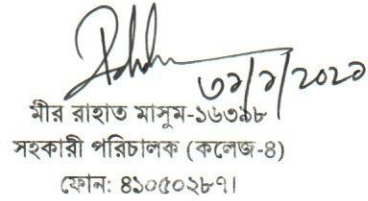 ৩১/১/২০২৩
মীর রাহাত মাসুম-১৬৩৯৮
সহকারী পরিচালক (কলেজ-৪)
ফোন: ৪১০৫০২৮৭।